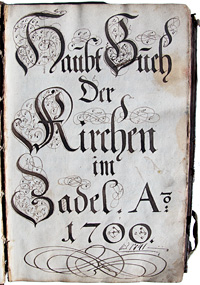 Haubt Buch
Der
Kirchen
im
Zadel. Aͦ.
1700.